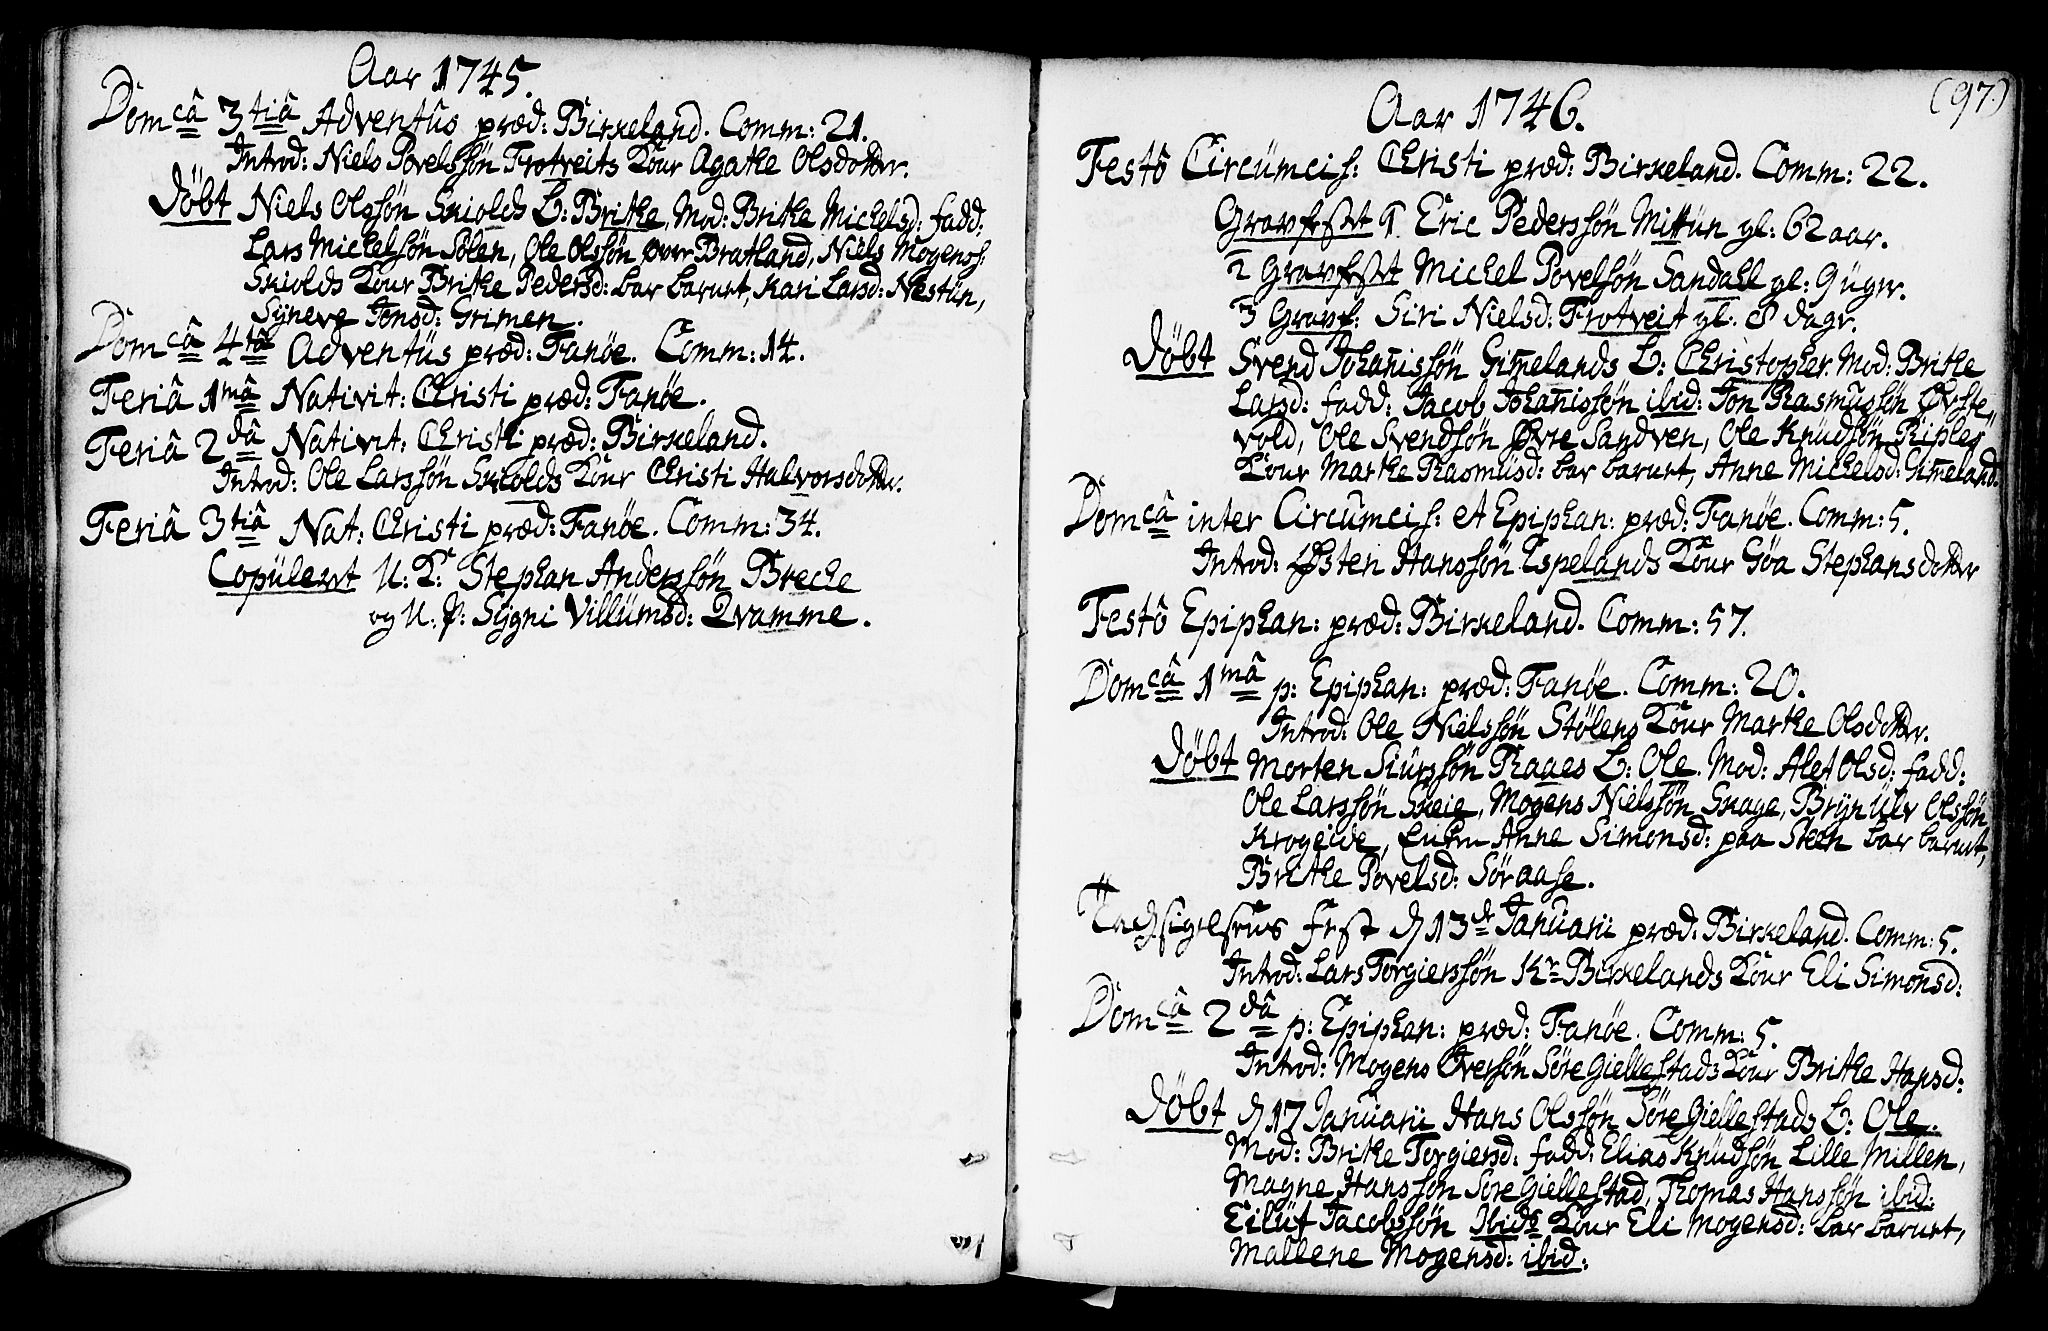 Aar 1745.
Domcâ 3tiâ Adventûs præd: Birkeland. Comm: 21.
Introd: Niels Povelssøn Frotveits Kone Agathe Olsdotter.
Döbt Niels Olssøn Skiolds B: Brithe, Mod: Brithe Michelsd: fadd:
Lars Michelsøn Solen, Ole Olssøn over Bratland, Niels Mogenss:
Skiolds Kone Brithe Pedersd: bar barnet, Kari Larsd: Nestün,
Syneve Jonsd: Grimen.
Domcâ 4tâ Adventüs præd: Fanøe. Comm: 14.
Feriâ 1mâ Nativit: Christi præd: Fanøe.
Feriâ 2dâ Nativit: Christi præd: Birkeland.
Introd: Ole Larssøn Skiolds Kone Christi Halvorsdotter.
Feriâ 3tiâ Nat: Christi præd: Fanøe. Comm: 34.
Copüleret U: K: Stephan Anderssøn Breche
og U. P: Sygni Villümsd: Qvamme.
(97.)
Aar 1746.
Festô Circümcis: Christi præd: Birkeland. Comm: 22.
Gravfest 1 Eric Pederssøn Mittün gl: 62 aar.
2 Gravfest Michel Povelsøn Sandahl gl: 9 uger.
3 Gravf: Siri Nielsd: Frotveit gl: 8 dage.
Döbt Svend Johanissøn Gimelands B: Christopher. Mod: Brithe
Larsd: fadd: Jacob Johanissøn ibid: Jon Rasmussøn Øvste
vold, Ole Svendsøn Øvre Sandven, Ole Knüdsøn Riples
Kone Marthe Rasmusd: bar barnet, Anne Michelsd: Gimeland.
Domcâ inter Circümcis: et Epiphan: præd: Fanøe. Comm: 5.
Introd: Østen Hanssøn Espelands Kone Göa Stephansdotter
Festô Epiphan: præd: Birkeland. Comm: 57.
Domcâ 1mâ p: Epiphan: præd: Fanøe. Comm: 20.
Introd: Ole Nielssøn Stølens Kone Marthe Olsdotter.
Döbt Morten Siurssøn Raaes B: Ole. Mod: Alet Olsd: fadd:
Ole Larssøn Skeie, Mogens Nielssøn Skage, Brynülv Olssøn
Krogeide, Enken Anne Simonsd: paa Steen bar barnet,
Brithe Povelsd: Søraase.
Tachsigelsens Fest d 13de Januarii præd: Birkeland. Comm: 5.
Introd: Lars Torgierssøn Kr Birkelands Kone Eli Simonsd:
Domcâ 2dâ p: Epiphan: præd: Fanøe. Comm: 5.
Introd: Mogens Iversøn Søre Giellestads Kone Brithe Hansd:
Döbt d 17 Januarii Hans Olssøn Søre Giellestads B: Ole.
Mod: Brithe Torgiersd: fadd: Elias Knüdsøn Lille Millen,
Magne Hanssøn Søre Giellestad, Thomas Hanssøn ibid:
Eilüf Jacobssøn Ibids Kone Eli Mogensd: bar barnet,
Mallene Mogensd: ibid: